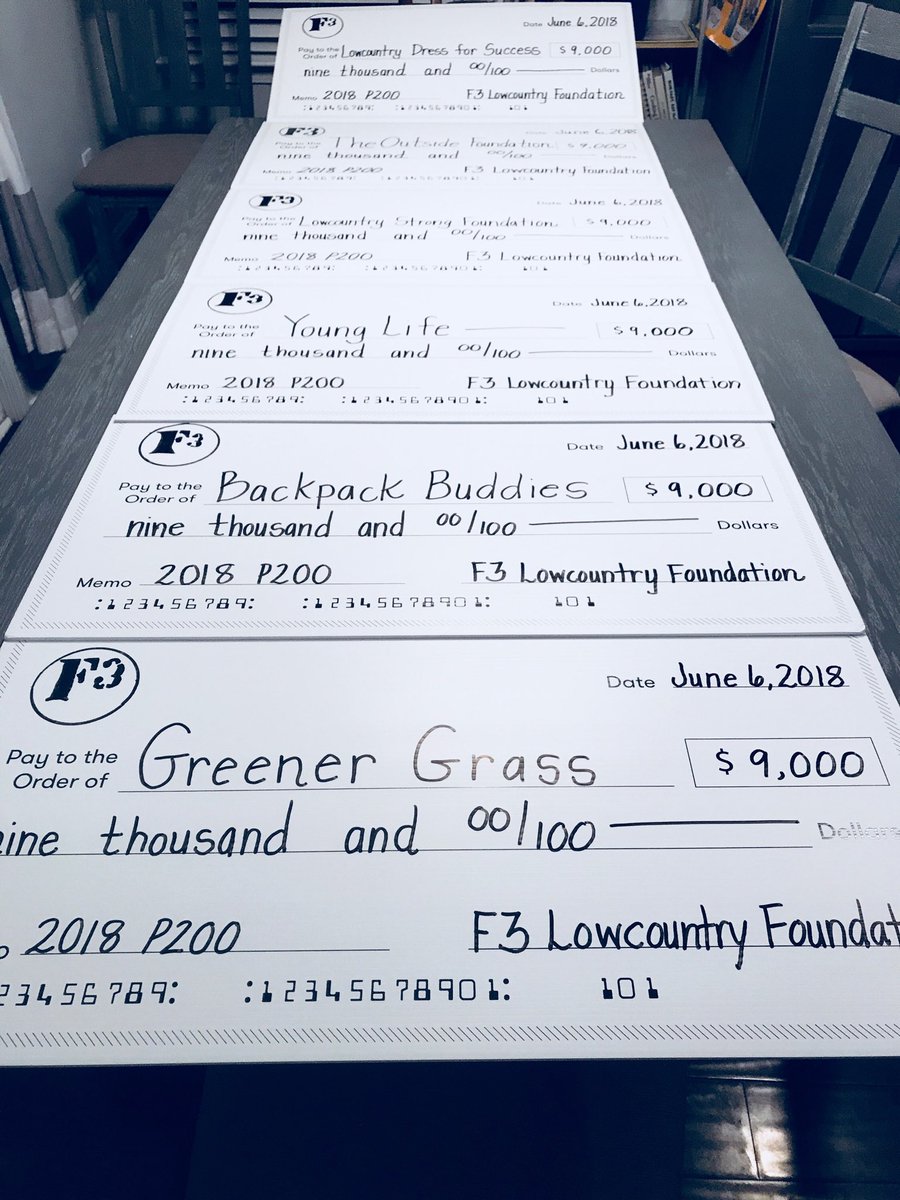 F3
Date June 6, 2018
Pay to the Order of Lowcountry Dress for Success $ 9,000
nine thousand and 00/100 Dollars
Memo 2018 P200 F3 Lowcountry Foundation
:123456789: :12345678901: 101
F3
Date June 6, 2018
Pay to the Order of The Outside Foundation $ 9,000
nine thousand and 00/100 Dollars
Memo 2018 P200 F3 Lowcountry Foundation
:123456789: :12345678901: 101
F3
Date June 6, 2018
Pay to the Order of Lowcountry Strong Foundation $ 9,000
nine thousand and 00/100 Dollars
Memo 2018 P200 F3 Lowcountry Foundation
:123456789: :12345678901: 101
F3
Date June 6, 2018
Pay to the Order of Young Life $ 9,000
nine thousand and 00/100 Dollars
Memo 2018 P200 F3 Lowcountry Foundation
:123456789: :12345678901: 101
F3
Date June 6, 2018
Pay to the Order of Backpack Buddies $ 9,000
nine thousand and 00/100 Dollars
Memo 2018 P200 F3 Lowcountry Foundation
:123456789: :12345678901: 101
F3
Date June 6, 2018
Pay to the Order of Greener Grass $ 9,000
nine thousand and 00/100 Dollars
o 2018 P200 F3 Lowcountry Foundat
23456789: :12345678901: 101